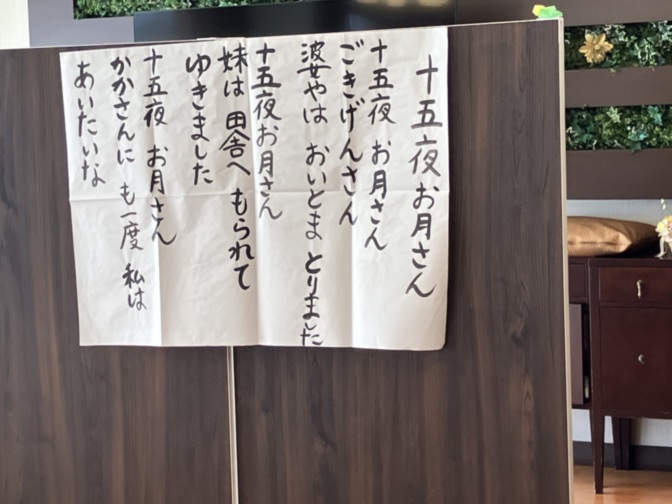 十五夜お月さん
十五夜 お月さん
ごきげんさん
婆やは おいとま とりました
十五夜お月さん
妹は 田舎へ もられて
ゆきました
十五夜 お月さん
かかさんに も一度 私は
あいたいな